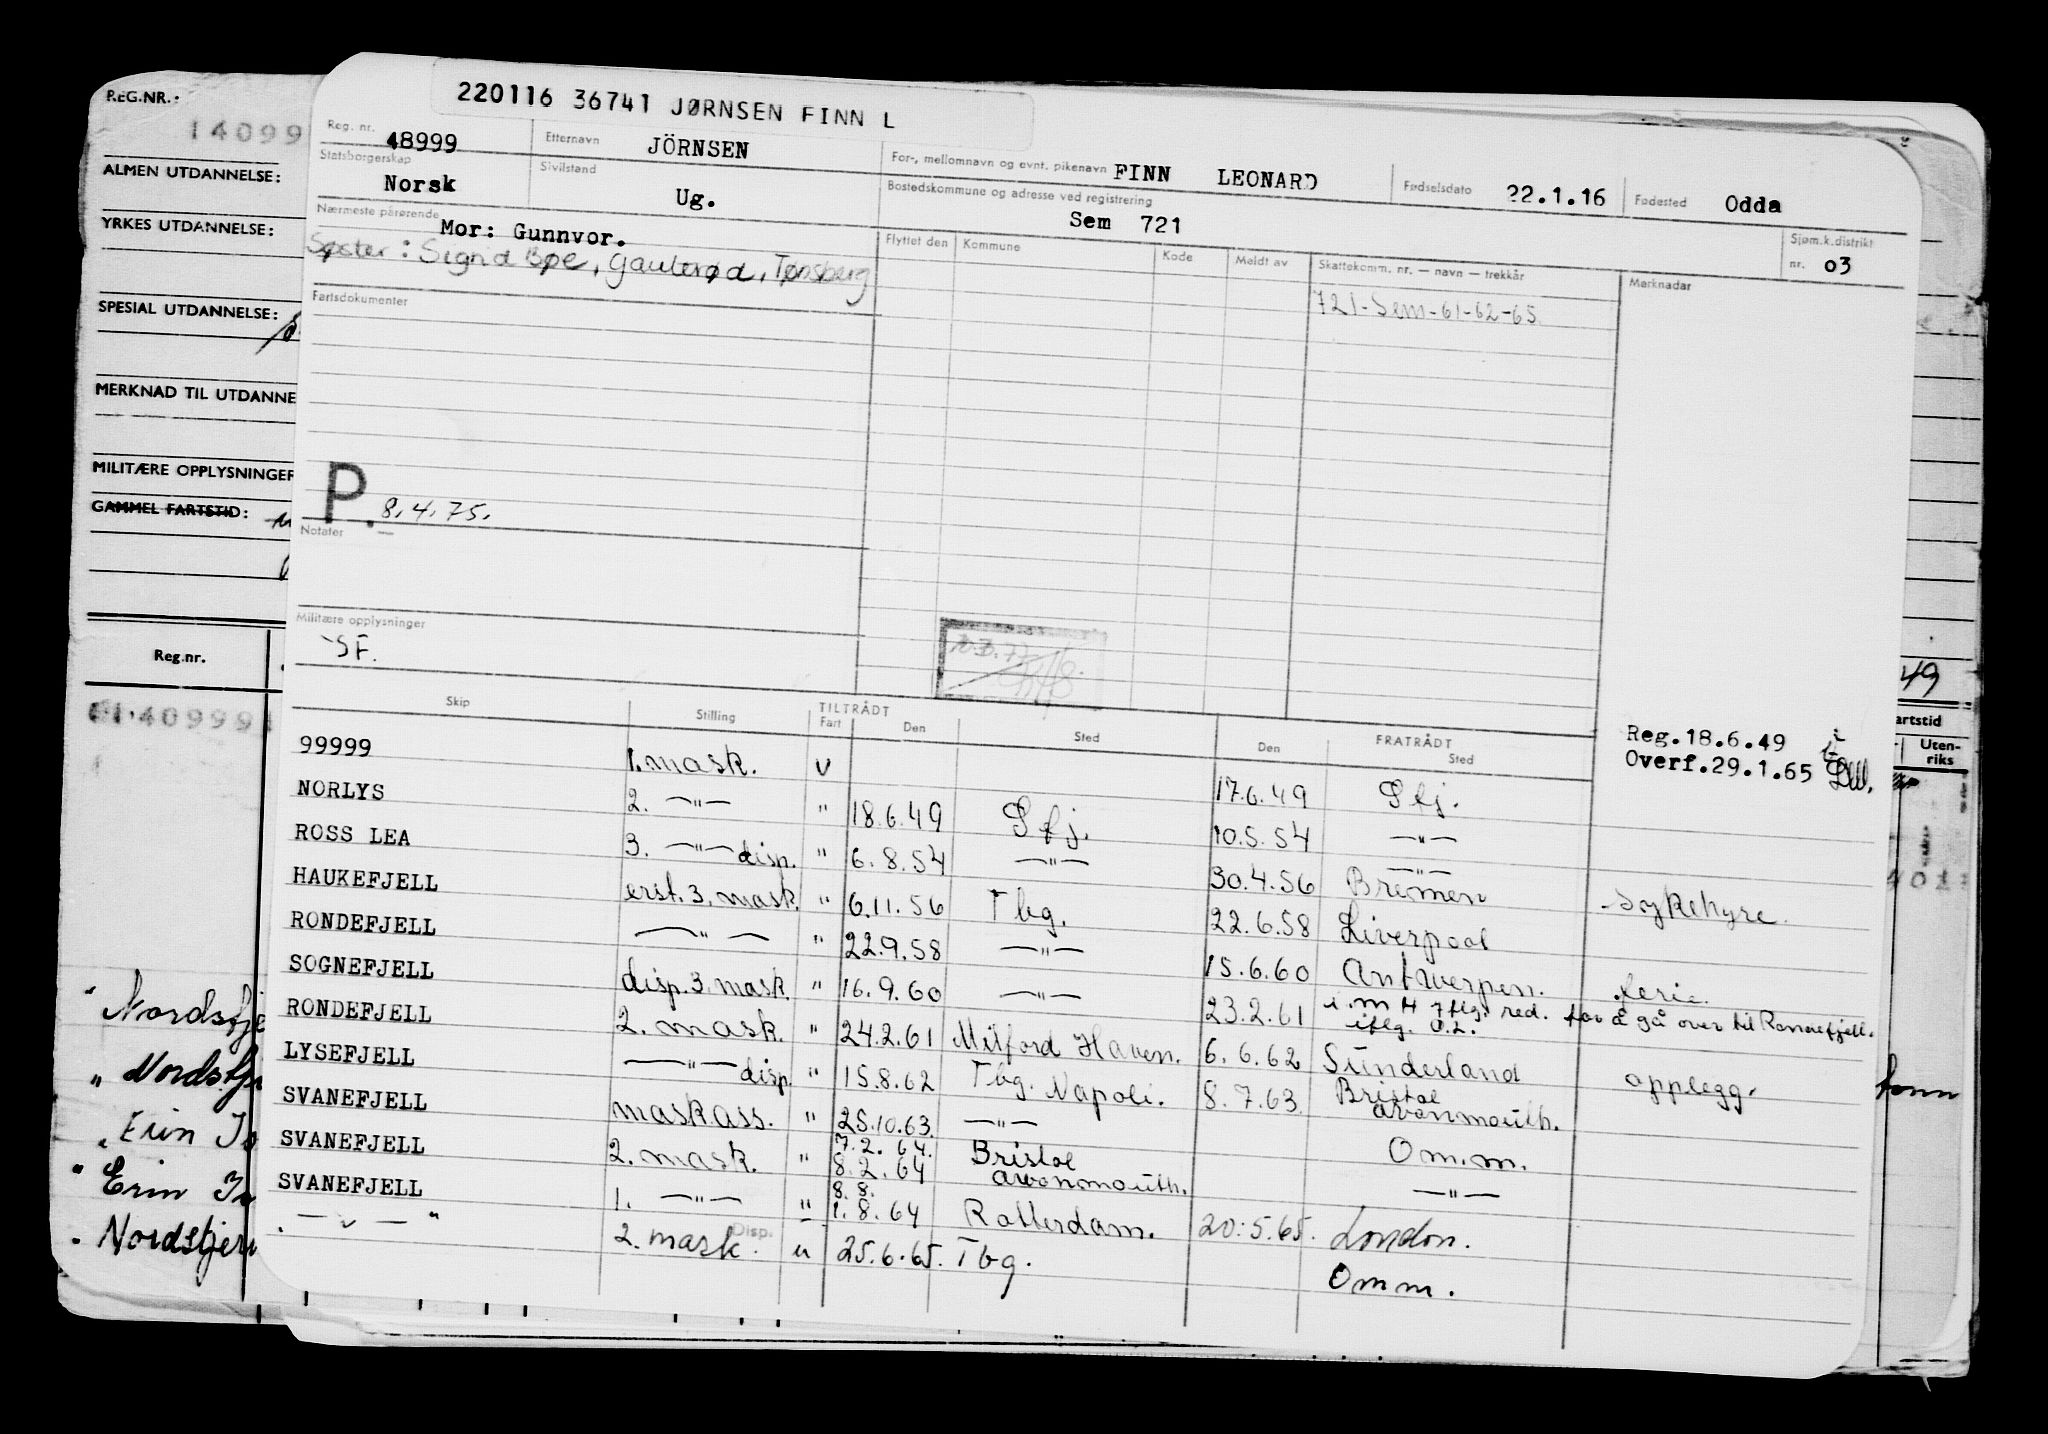 220116 36741 JØRNSEN FINN L
REG.NR.:
14099
Reg. nr. 48999 Etternavn JÖRNSEN For-, mellomnavn og evnt. pikenavn FINN LEONARD Fødselsdato 22.1.16 Fødested Odda
ALMEN UTDANNELSE:
Statsborgerskap Norsk Sivilstand Ug. Bostedskommune og adresse ved registrering Sem 721
YRKES UTDANNELSE:
Nærmeste pårørende Mor: Gunnvor. Flyttet den Kommune Kode Meldt av Skattekomm. nr. — navn — trekkår Sjøm.k.distrikt nr. 03
Søster: Sigrid Bøe, Gauterød, Tønsberg
Merknader
SPESIAL UTDANNELSE:
Fartsdokumenter
721-Sem-61-62-65
MERKNAD TIL UTDANNE
MILITÆRE OPPLYSNINGER
P. 8.4.75.
GAMMEL FARTSTID:
Notater
Militære opplysninger
SF.
Reg.nr.
49
artstid
Uten-
riks
Reg.18.6.49
Overf.29.1.65
Skip Stilling TILTRÅDT Fart Den Sted FRATRÅDT Den Sted
99999 1. mask. v 17.6.49 Sfj.
NORLYS 2. —"— " 18.6.49 Sfj. 10.5.54 —"—
ROSS LEA 3. —"— disp. " 6.8.54 —"— 30.4.56 Bremen sykehyre.
HAUKEFJELL erst. 3. mask. " 6.11.56 Tbg. 22.6.58 Liverpool
RONDEFJELL —"— " 22.9.58 —"— 15.6.60 Antwerpen. ferie.
SOGNEFJELL disp. 3. mask. " 16.9.60 —"— 23.2.61 i.m H 7 flg. red. for å gå over til Rondefjell.
iflg. O.L.
RONDEFJELL 2. mask. " 24.2.61 Milford Haven. 6.6.62 Sunderland opplegg.
LYSEFJELL —"— disp. " 15.8.62 Tbg. Napoli. 8.7.63 Bristol Avonmouth.
SVANEFJELL mask.ass. " 25.10.63. —"— Omm.
7.2.64.
SVANEFJELL 2. mask. " 8.2.64 Bristol Avonmouth. —"—
8.8.
SVANEFJELL 1. —"— " 1.8.64 Rotterdam. 20.5.65. London.
—"— 2. mask. Disp. " 25.6.65. Tbg. Omm.
" Nordstje
" Nordstje
" Erin
" Erin
" Nordstjern